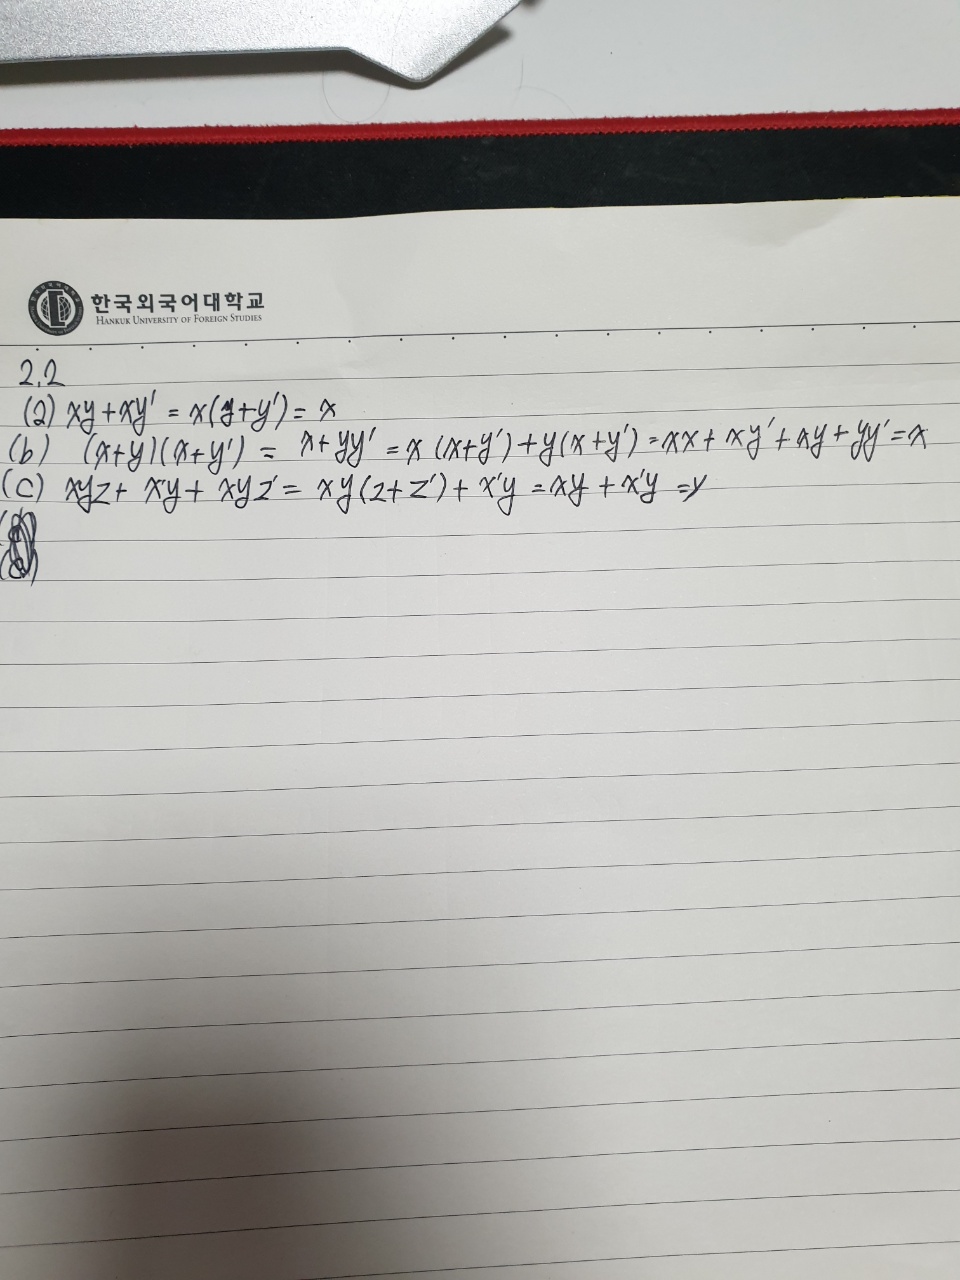 한국외국어대학교
HANKUK UNIVERSITY OF FOREIGN STUDIES
2.2
(a) xy+xy' = x(y+y') = x
(b) (x+y)(x+y') = x+yy' = x(x+y')+y(x+y') = xx+xy'+xy+yy' = x
(c) xyz+x'y+xyz' = xy(z+z')+x'y = xy+x'y = y